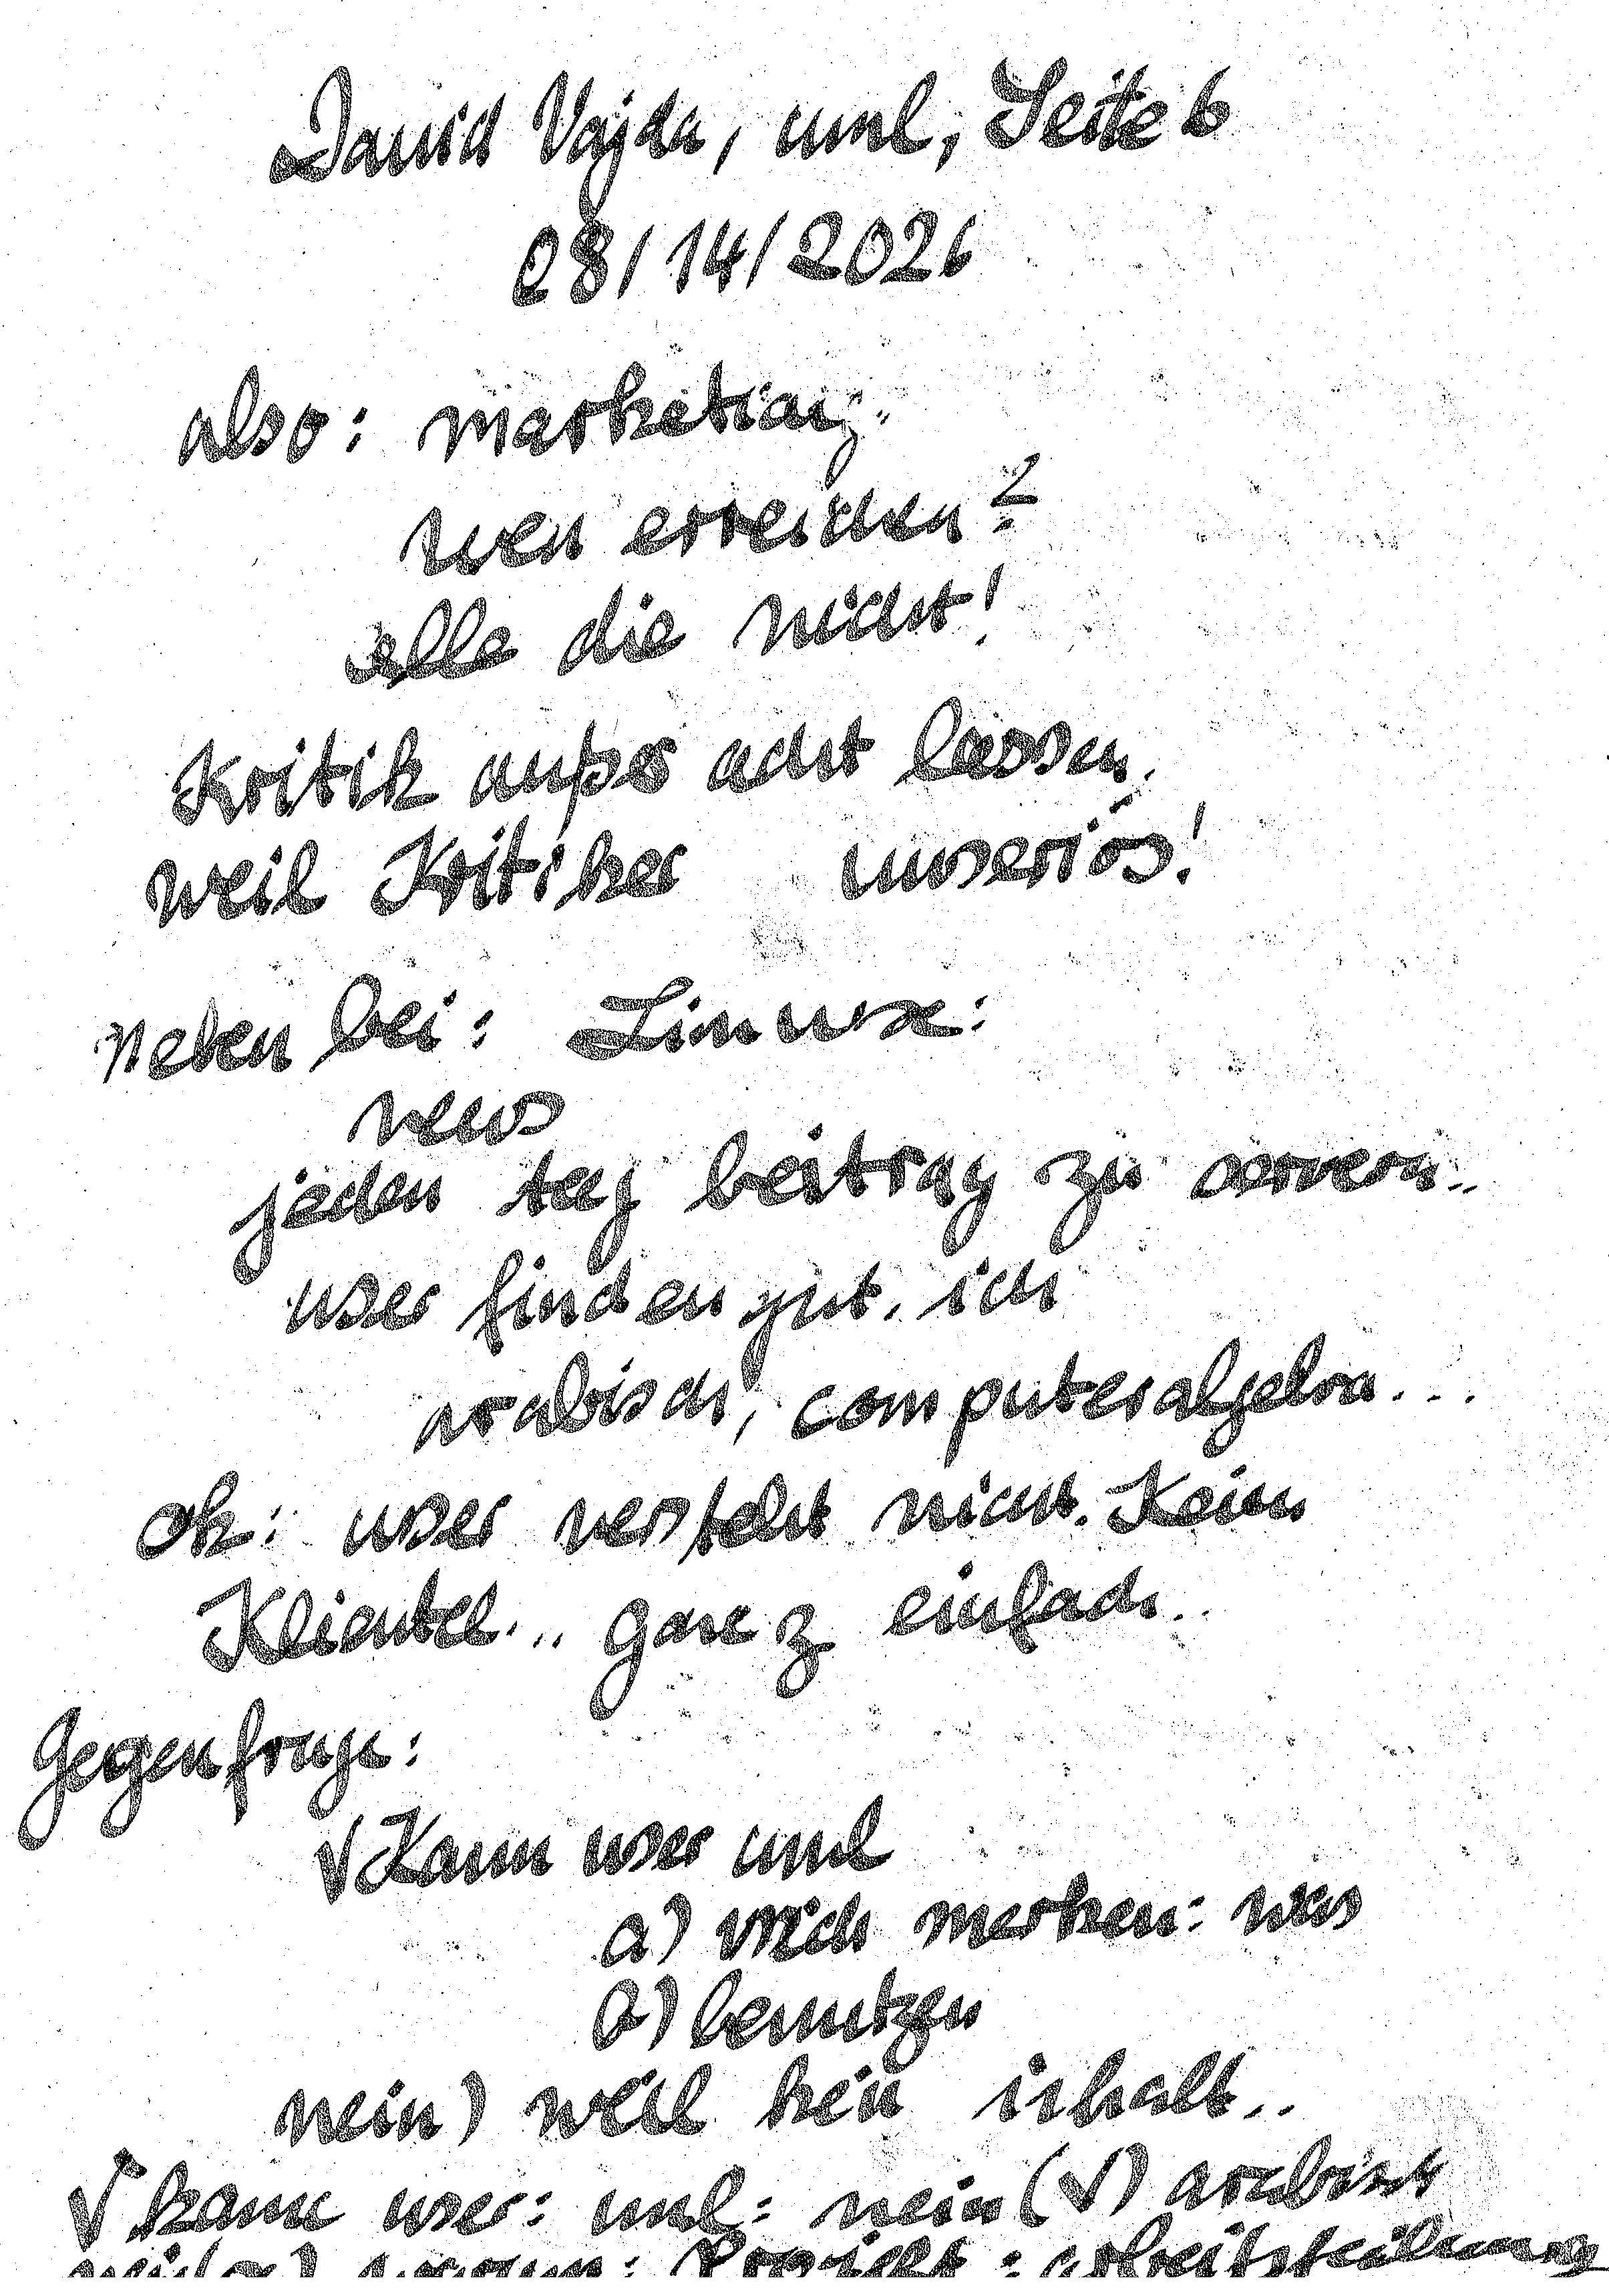 David Vajda, uml, Seite 6
08/14/2026
also: marketing.
wen erreichen?
alle die nicht!
Kritik außer acht lassen.
weil Kritiker unseriös!
neben bei: Linux:
news
jeden tag beitrag zu servern..
user finden gut. ich
arabisch, computeralgebra...
ok: user versteht nicht. Kein
Klientel... ganz einfach..
Gegenfrage:
Kann user uml
a) sich merken: was
b) benutzen
nein) weil kein inhalt..
kann user: uml: nein (√) arabisch
weil a) warum: Projekt: arbeitsteilung